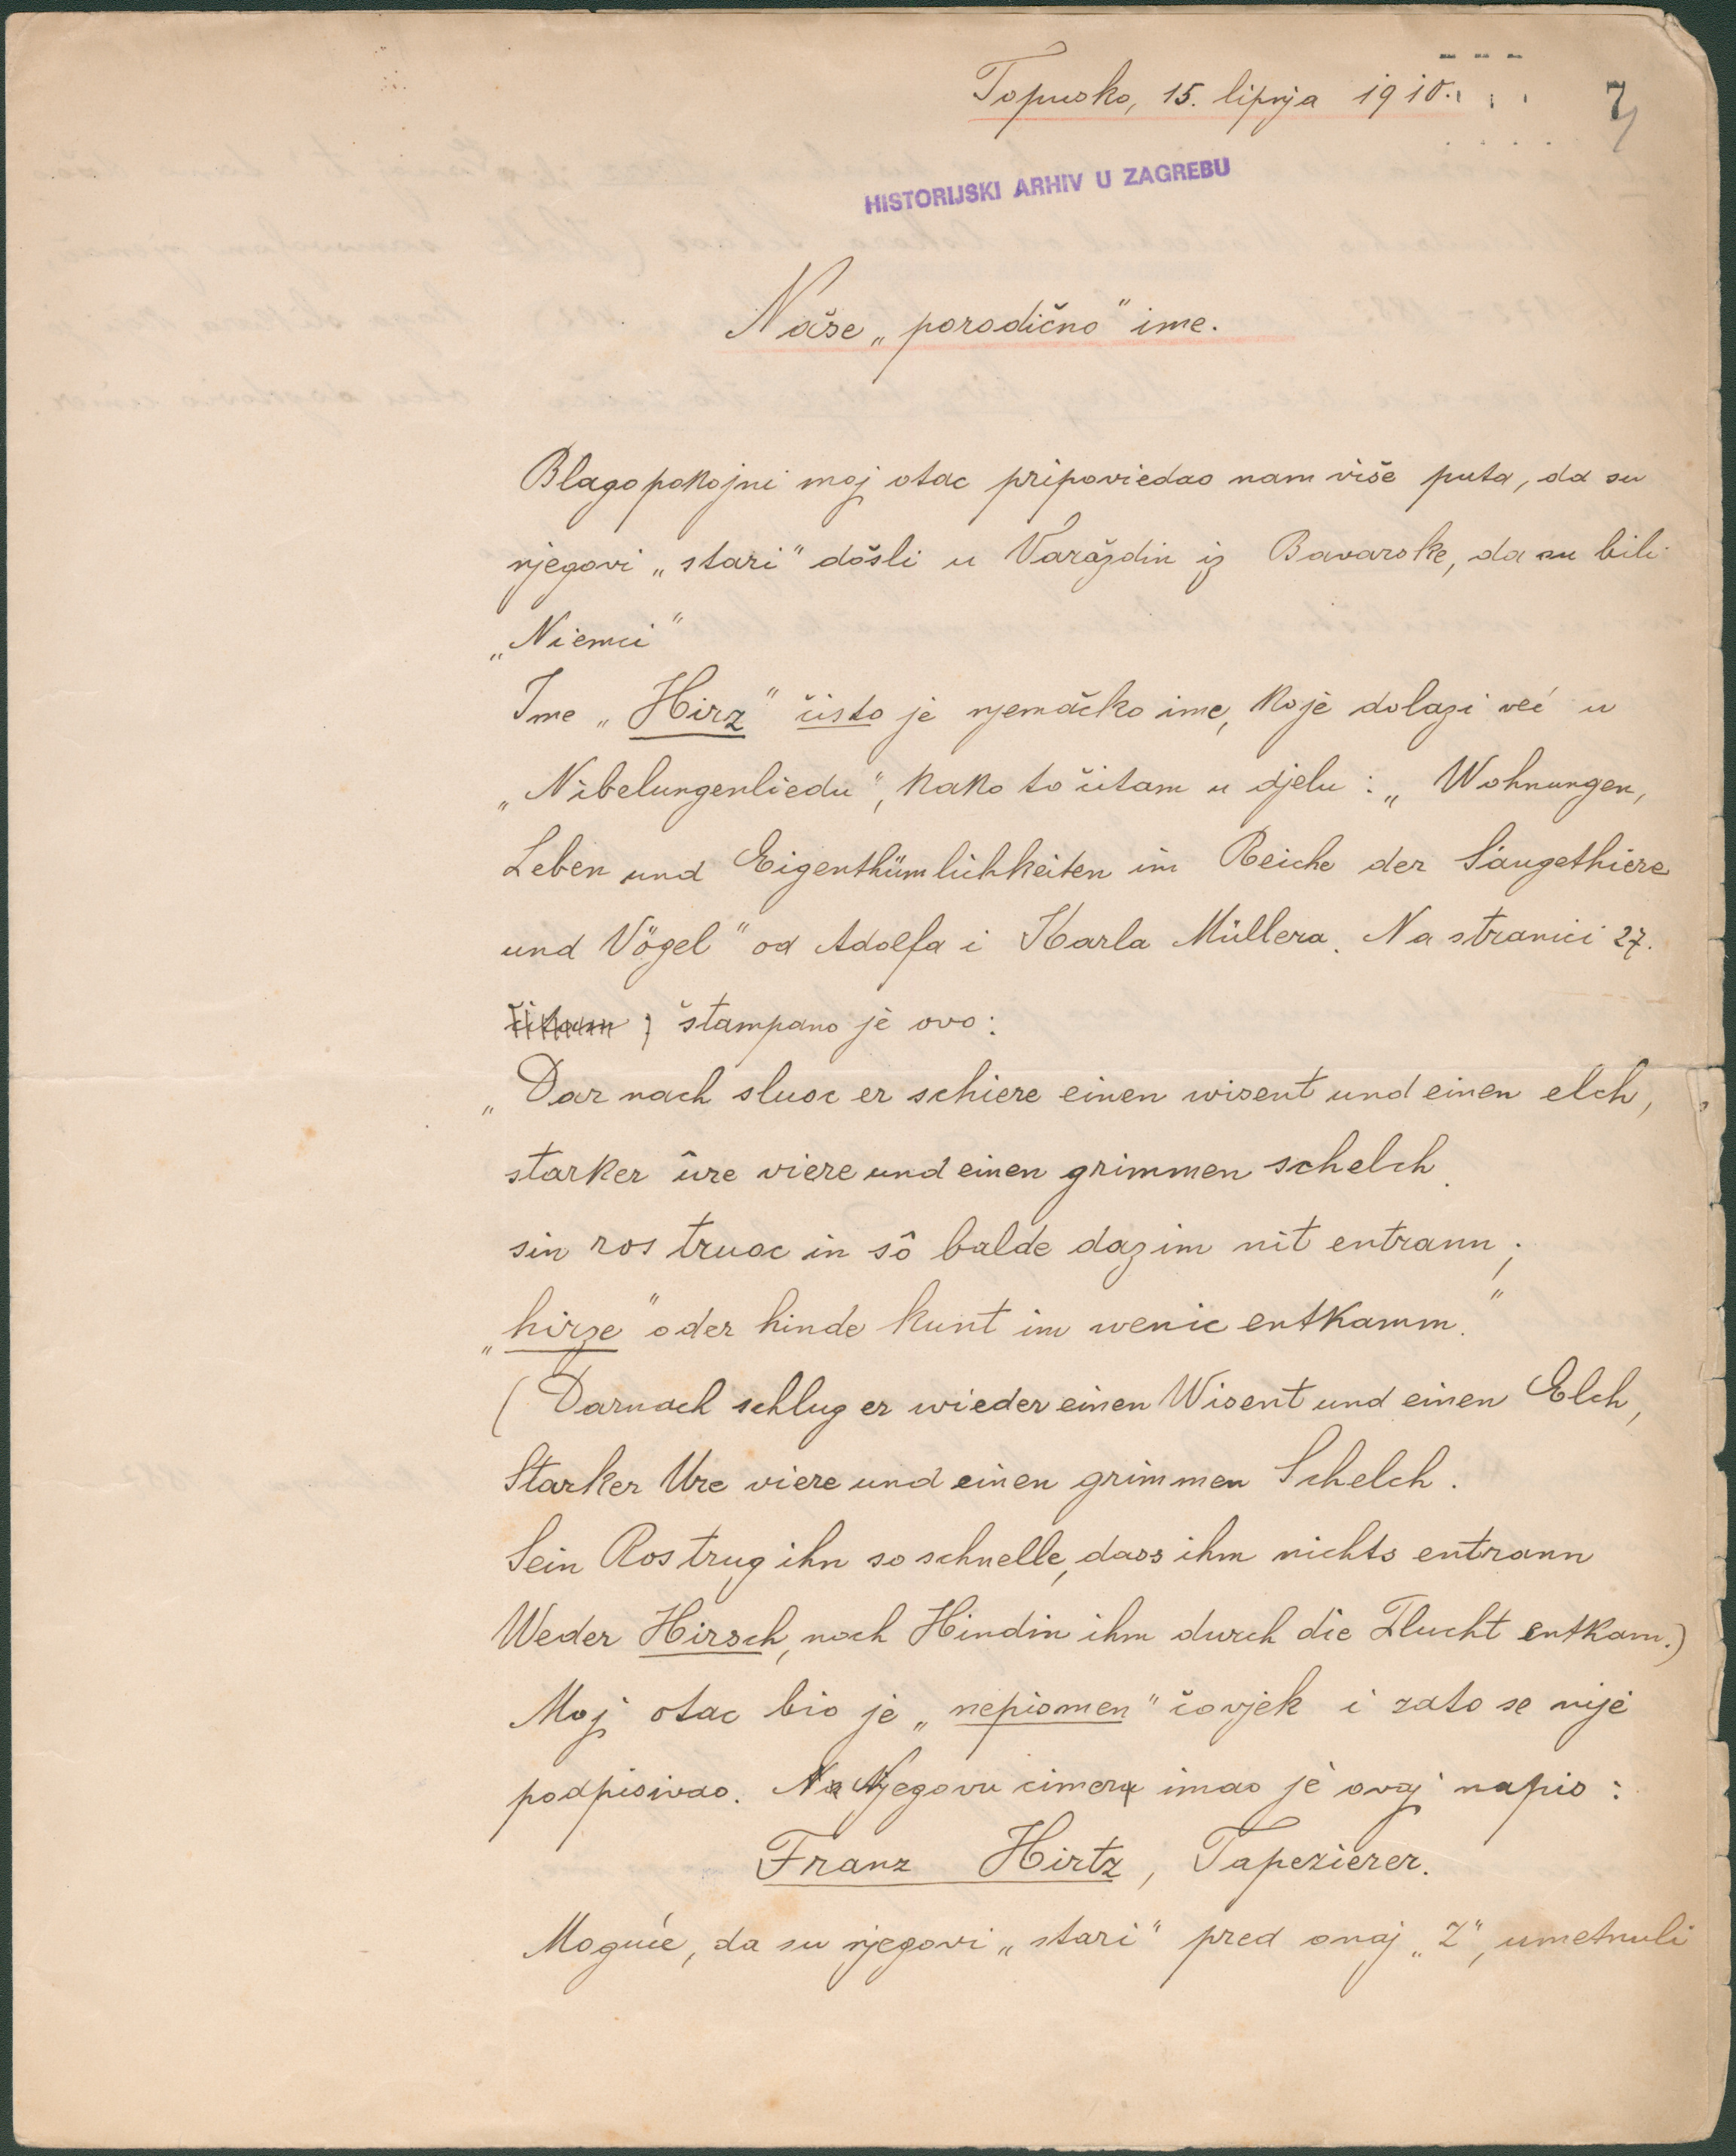 Topusko, 15. lipnja 1910.
7
HISTORIJSKI ARHIV U ZAGREBU
Naše „porodično“ ime.
Blagopokojni moj otac pripoviedao nam više puta, da su
njegovi „stari“ došli u Varaždin iz Bavarske, da su bili
„Niemci“
Ime „Hirz“ čisto je njemačko ime, koje dolazi već u
„Nibelungenliedu“, kako to čitam u djelu: „Wohnungen,
Leben und Eigenthümlichkeiten im Reiche der Säugethiere
und Vögel“ od Adolfa i Karla Müllera. Na stranici 27.
čitam ; štampano je ovo:
„Dar nach sluoc er schiere einen wisent und einen elch,
starker ûre viere und einen grimmen schelch.
sin ros truoc in sô balde daz im nit entrann;
„hirze“ oder hinde kunt im wenic entkamm.“
(Darnach schlug er wieder einen Wisent und einen Elch,
Starker Ure viere und einen grimmen Schelch.
Sein Ros trug ihn so schnelle, dass ihm nichts entrann
Weder Hirsch, noch Hindin ihm durch die Flucht entkam.)
Moj otac bio je „nepismen“ čovjek i zato se nije
podpisivao. Na Njegovu cimeru imao je ovaj napis:
Franz Hirtz, Tapezierer.
Moguće, da su njegovi „stari“ pred onaj „Z“, umetnuli